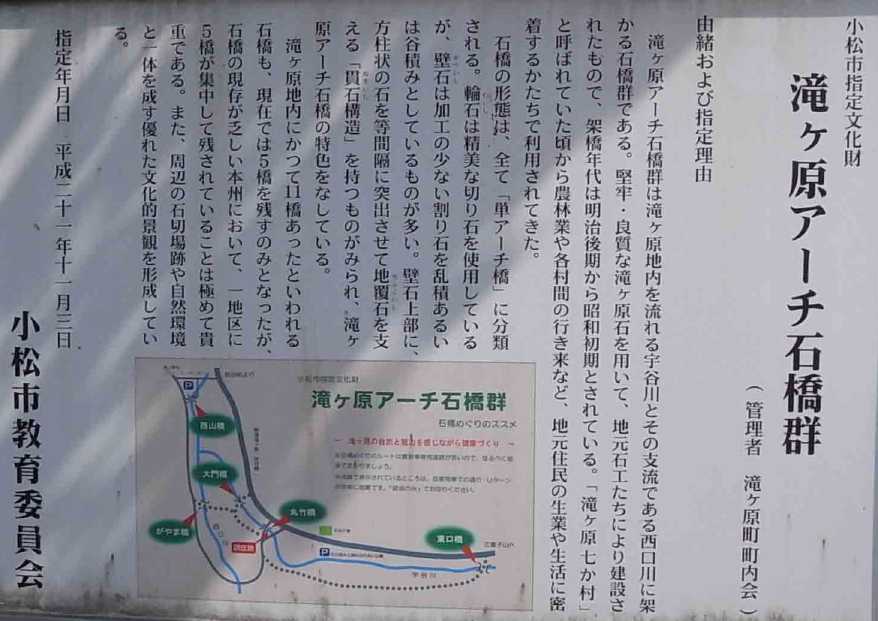 小松市指定文化財
滝ヶ原アーチ石橋群
（管理者　滝ヶ原町町内会）
由緒および指定理由
滝ヶ原アーチ石橋群は滝ヶ原地内を流れる宇谷川とその支流である西口川に架
かる石橋群である。堅牢・良質な滝ヶ原石を用いて、地元石工たちにより建設さ
れたもので、架橋年代は明治後期から昭和初期とされている。「滝ヶ原七か村」
と呼ばれていた頃から農林業や各村間の行き来など、地元住民の生業や生活に密
着するかたちで利用されてきた。
石橋の形態は、全て「単アーチ橋」に分類
される。輪石は精美な切り石を使用している
が、壁石は加工の少ない割り石を乱積あるい
は谷積みとしているものが多い。壁石上部に、
方柱状の石を等間隔に突出させて地覆石を支
える「貫石構造」を持つものがみられ、滝ヶ
原アーチ石橋の特色をなしている。
滝ヶ原地内にかつて11橋あったといわれる
石橋も、現在では5橋を残すのみとなったが、
石橋の現存が乏しい本州において、一地区に
5橋が集中して残されていることは極めて貴
重である。また、周辺の石切場跡や自然環境
と一体を成す優れた文化的景観を形成してい
る。
指定年月日　平成二十一年十一月三日
小松市教育委員会
小松市指定文化財
滝ヶ原アーチ石橋群
石橋めぐりのススメ
～ 滝ヶ原の自然と魅力を感じながら健康づくり ～
P
西山橋
大門橋
がやま橋
丸竹橋
現在地
P
東口橋
宇谷川